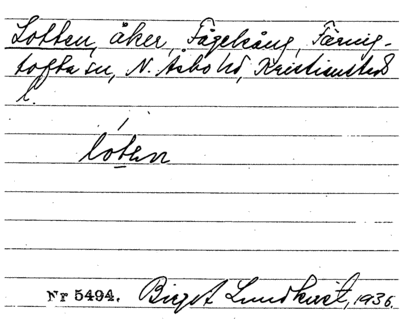 Lotten, åker, Fågelsång, Färing-
tofta sn, N. Åsbo hd, Kristianstads
l.
lo̱ten
Nr 5494. Birgit Lundkvist, 1936.